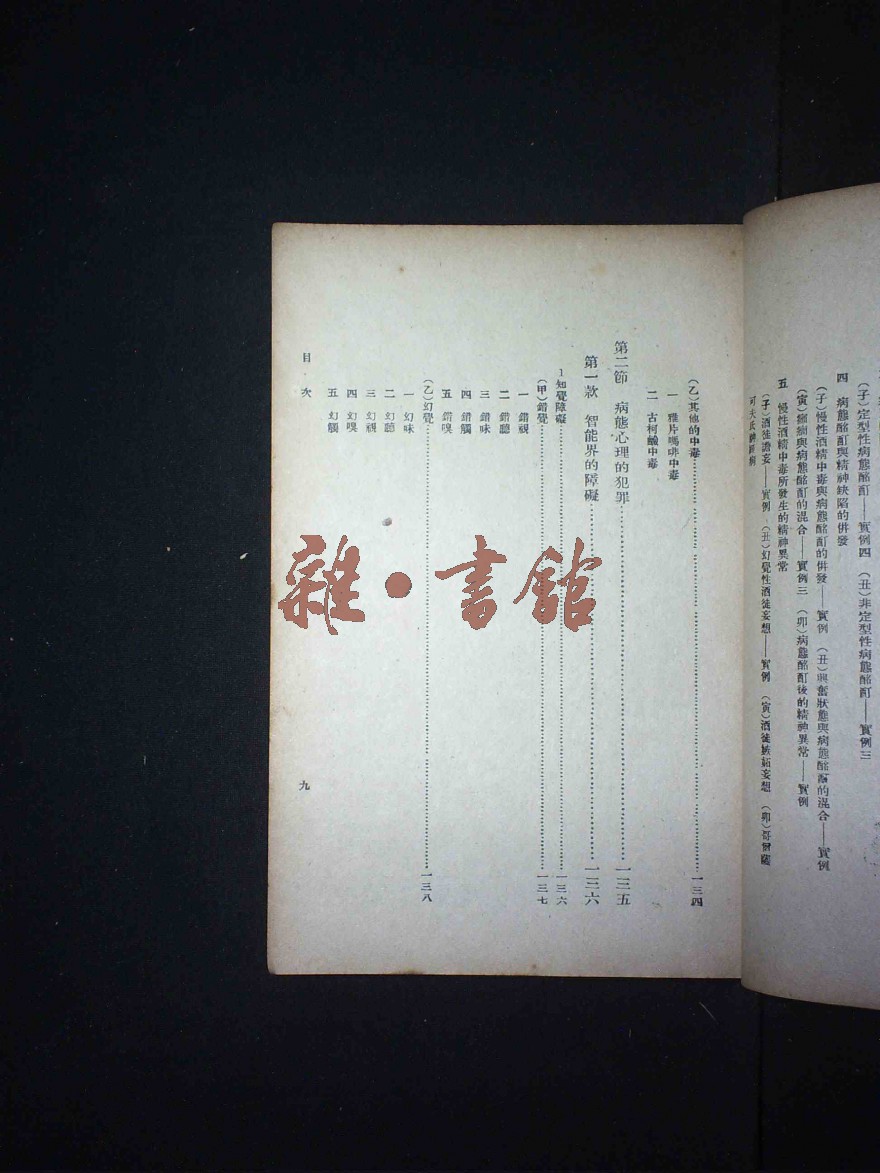 （子）定型性病態酩酊——實例四　（丑）非定型性病態酩酊——實例三
四　病態酩酊與精神缺陷的併發
（子）慢性酒精中毒與病態酩酊的併發——實例　（丑）興奮狀態與病態酩酊的混合——實例
（寅）癲癇與病態酩酊的混合——實例三　（卯）病態酩酊後的精神異常——實例
五　慢性酒精中毒所發生的精神異常
（子）酒徒譫妄——實例　（丑）幻覺性酒徒妄想——實例　（寅）酒徒嫉妬妄想　（卯）哥爾薩
可夫氏精神病
（乙）其他的中毒……一三四
一　雅片嗎啡中毒
二　古柯鹼中毒
第二節　病態心理的犯罪……一三五
第一款　智能界的障礙……一三六
1知覺障礙……一三六
（甲）錯覺……一三七
一　錯視
二　錯聽
三　錯味
四　錯觸
五　錯嗅
（乙）幻覺……一三八
一　幻味
二　幻聽
三　幻視
四　幻嗅
五　幻觸
目　次
九
雜·書館